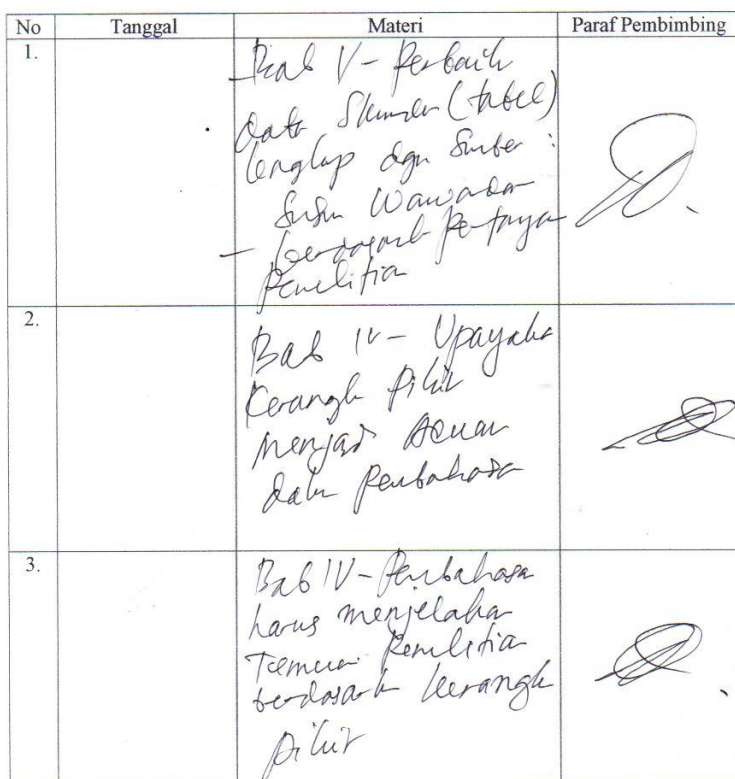 No Tanggal Materi Paraf Pembimbing
1.
Bab V - Perbaiki
data Skunder (tabel)
lengkap dgn Sumber :
Susun Wawancara
- berdasark Pertanya
Penelitian
2.
Bab IV - Upayaka
Kerangk Pikir
menjadi Acuan
dalm Pembahasa
3.
Bab IV - Pembahasa
harus menjelaska
Temuan Penelitia
berdasark kerangk
pikir